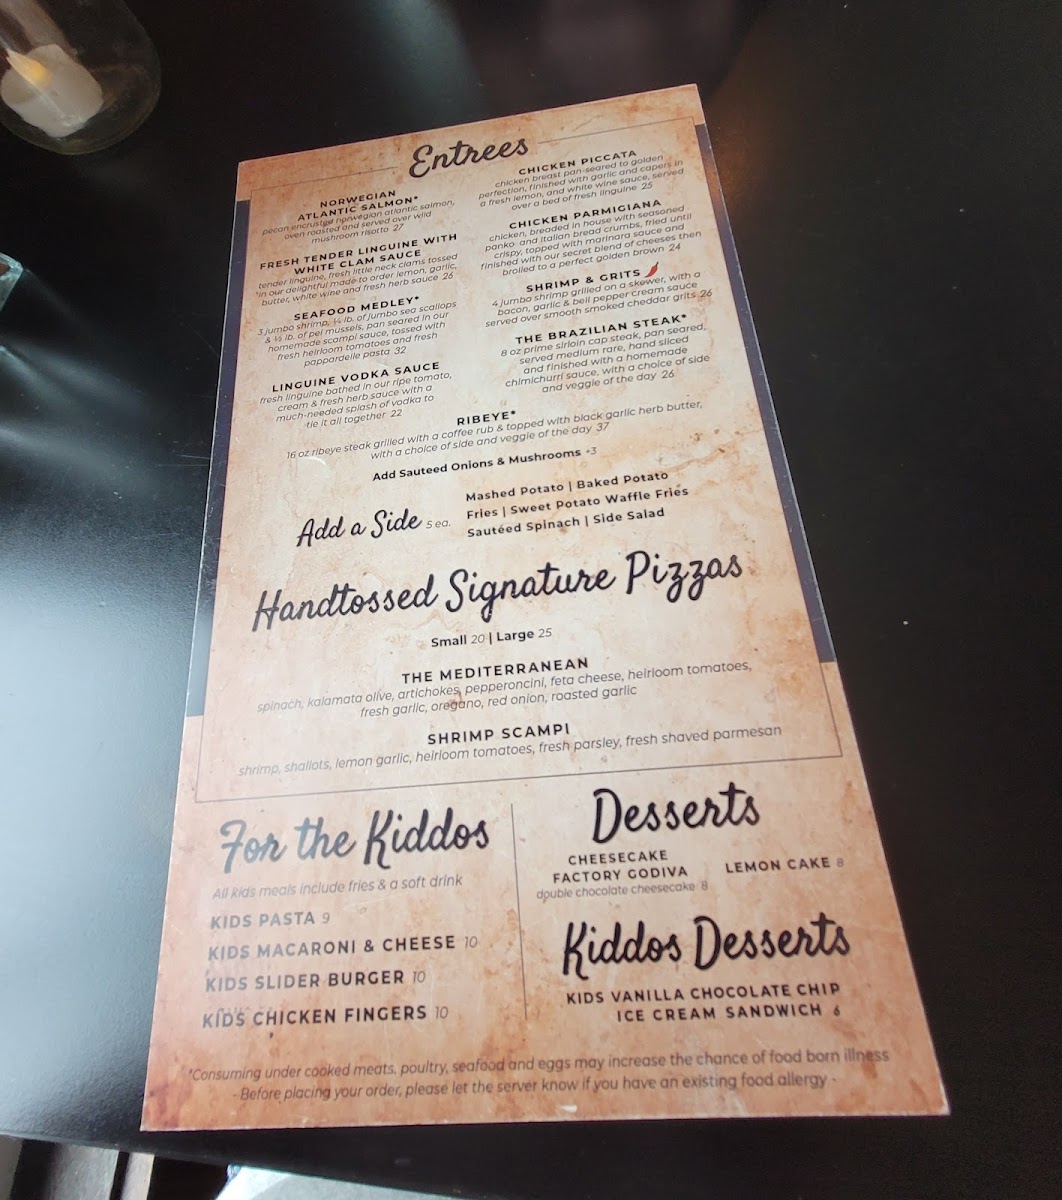 Entrees
NORWEGIAN
ATLANTIC SALMON*
pecan encrusted norwegian atlantic salmon,
oven roasted and served over wild
mushroom risotto 27
FRESH TENDER LINGUINE WITH
WHITE CLAM SAUCE
tender linguine, fresh little neck clams tossed
in our delightful made to order lemon, garlic,
butter, white wine and fresh herb sauce 26
SEAFOOD MEDLEY*
3 jumbo shrimp, ¼ lb. of jumbo sea scallops
& ½ lb. of pei mussels, pan seared in our
homemade scampi sauce, tossed with
fresh heirloom tomatoes and fresh
pappardelle pasta 32
LINGUINE VODKA SAUCE
fresh linguine bathed in our ripe tomato,
cream & fresh herb sauce with a
much-needed splash of vodka to
tie it all together 22
CHICKEN PICCATA
chicken breast pan-seared to golden
perfection, finished with garlic and capers in
a fresh lemon, and white wine sauce, served
over a bed of fresh linguine 25
CHICKEN PARMIGIANA
chicken, breaded in house with seasoned
panko and Italian bread crumbs, fried until
crispy, topped with marinara sauce and
finished with our secret blend of cheeses then
broiled to a perfect golden brown 24
SHRIMP & GRITS
4 jumbo shrimp grilled on a skewer, with a
bacon, garlic & bell pepper cream sauce
served over smooth smoked cheddar grits 26
THE BRAZILIAN STEAK*
8 oz prime sirloin cap steak, pan seared,
served medium rare, hand sliced
and finished with a homemade
chimichurri sauce, with a choice of side
and veggie of the day 26
RIBEYE*
16 oz ribeye steak grilled with a coffee rub & topped with black garlic herb butter,
with a choice of side and veggie of the day 37
Add Sauteed Onions & Mushrooms +3
Add a Side 5 ea.
Mashed Potato | Baked Potato
Fries | Sweet Potato Waffle Fries
Sautéed Spinach | Side Salad
Handtossed Signature Pizzas
Small 20 | Large 25
THE MEDITERRANEAN
spinach, kalamata olive, artichokes, pepperoncini, feta cheese, heirloom tomatoes,
fresh garlic, oregano, red onion, roasted garlic
SHRIMP SCAMPI
shrimp, shallots, lemon garlic, heirloom tomatoes, fresh parsley, fresh shaved parmesan
For the Kiddos
All kids meals include fries & a soft drink
KIDS PASTA 9
KIDS MACARONI & CHEESE 10
KIDS SLIDER BURGER 10
KIDS CHICKEN FINGERS 10
Desserts
CHEESECAKE
FACTORY GODIVA
double chocolate cheesecake 8
LEMON CAKE 8
Kiddos Desserts
KIDS VANILLA CHOCOLATE CHIP
ICE CREAM SANDWICH 6
*Consuming under cooked meats, poultry, seafood and eggs may increase the chance of food born illness
- Before placing your order, please let the server know if you have an existing food allergy -